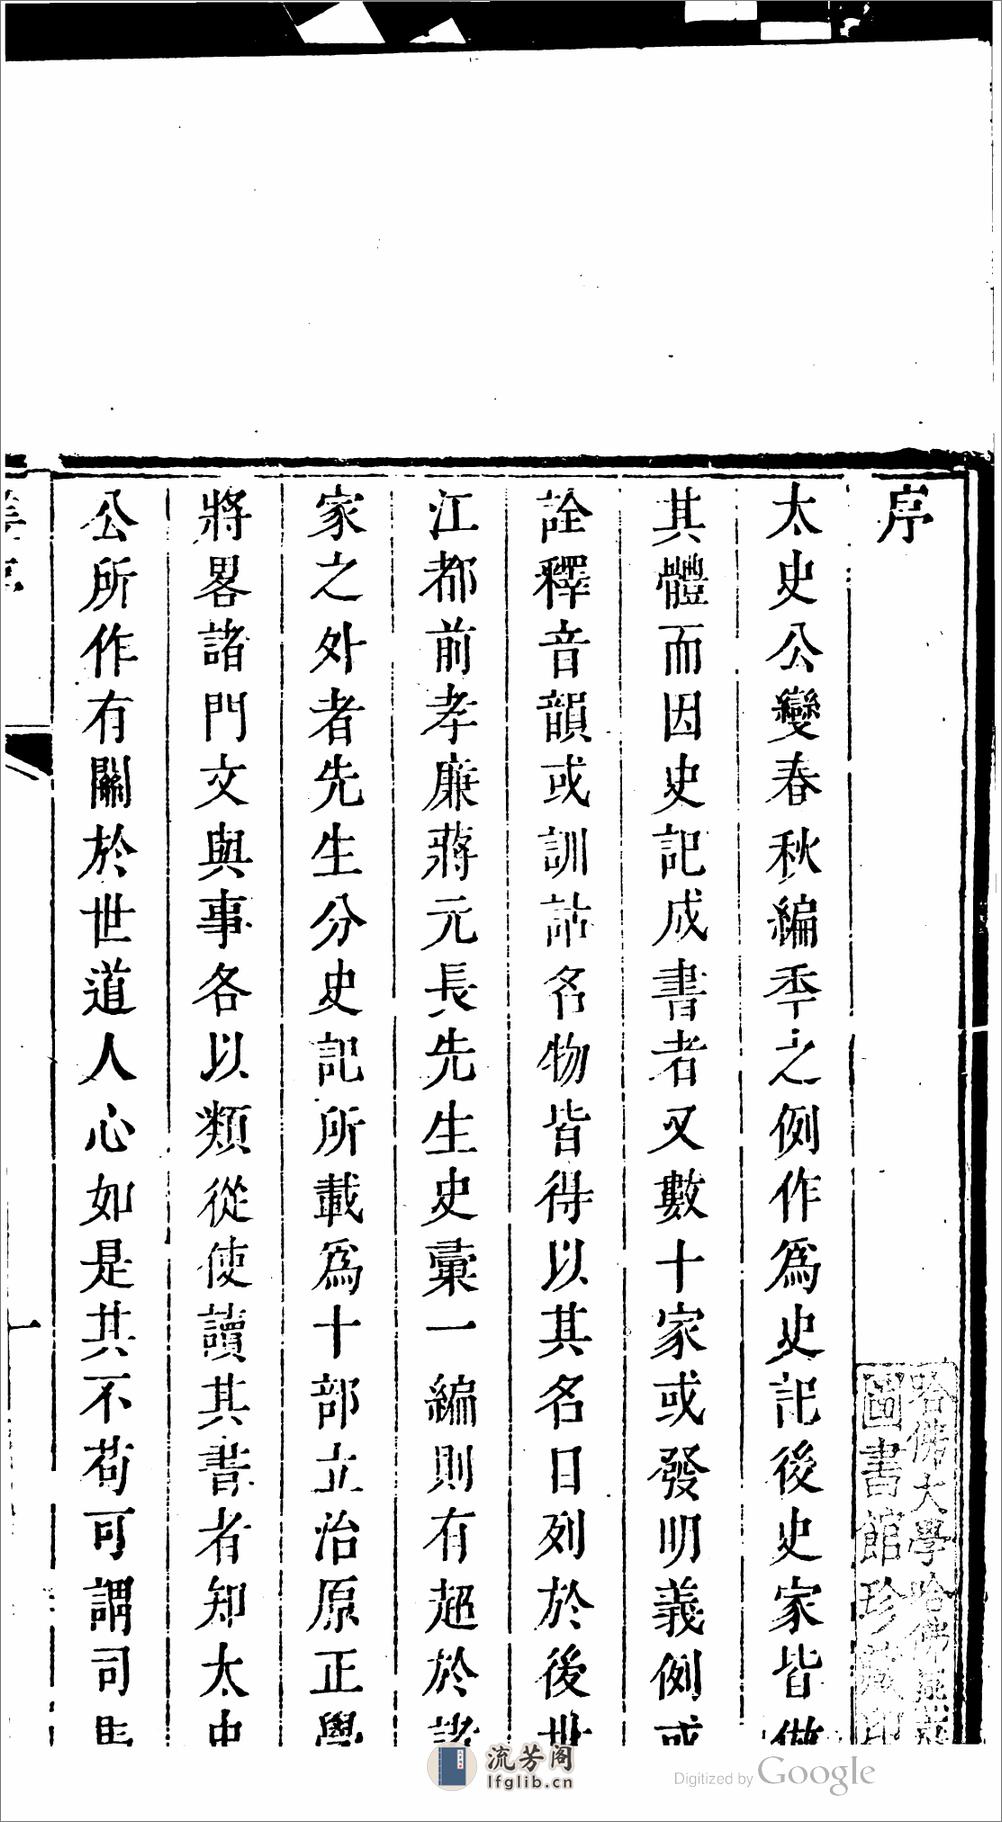 序
太史公變春秋編秊之例作爲史記後史家皆倣
其體而因史記成書者又數十家或發明義例或
詮釋音韻或訓詁名物皆得以其名日列於後世
江都前孝廉蔣元長先生史彙一編則有超於諸
家之外者先生分史記所載爲十部立治原正學
將畧諸門文與事各以類從使讀其書者知太史
公所作有關於世道人心如是其不苟可謂司馬
一
哈佛大學哈佛燕京
圖書館珍藏印
流芳阁
lfglib.cn
Digitized by Google